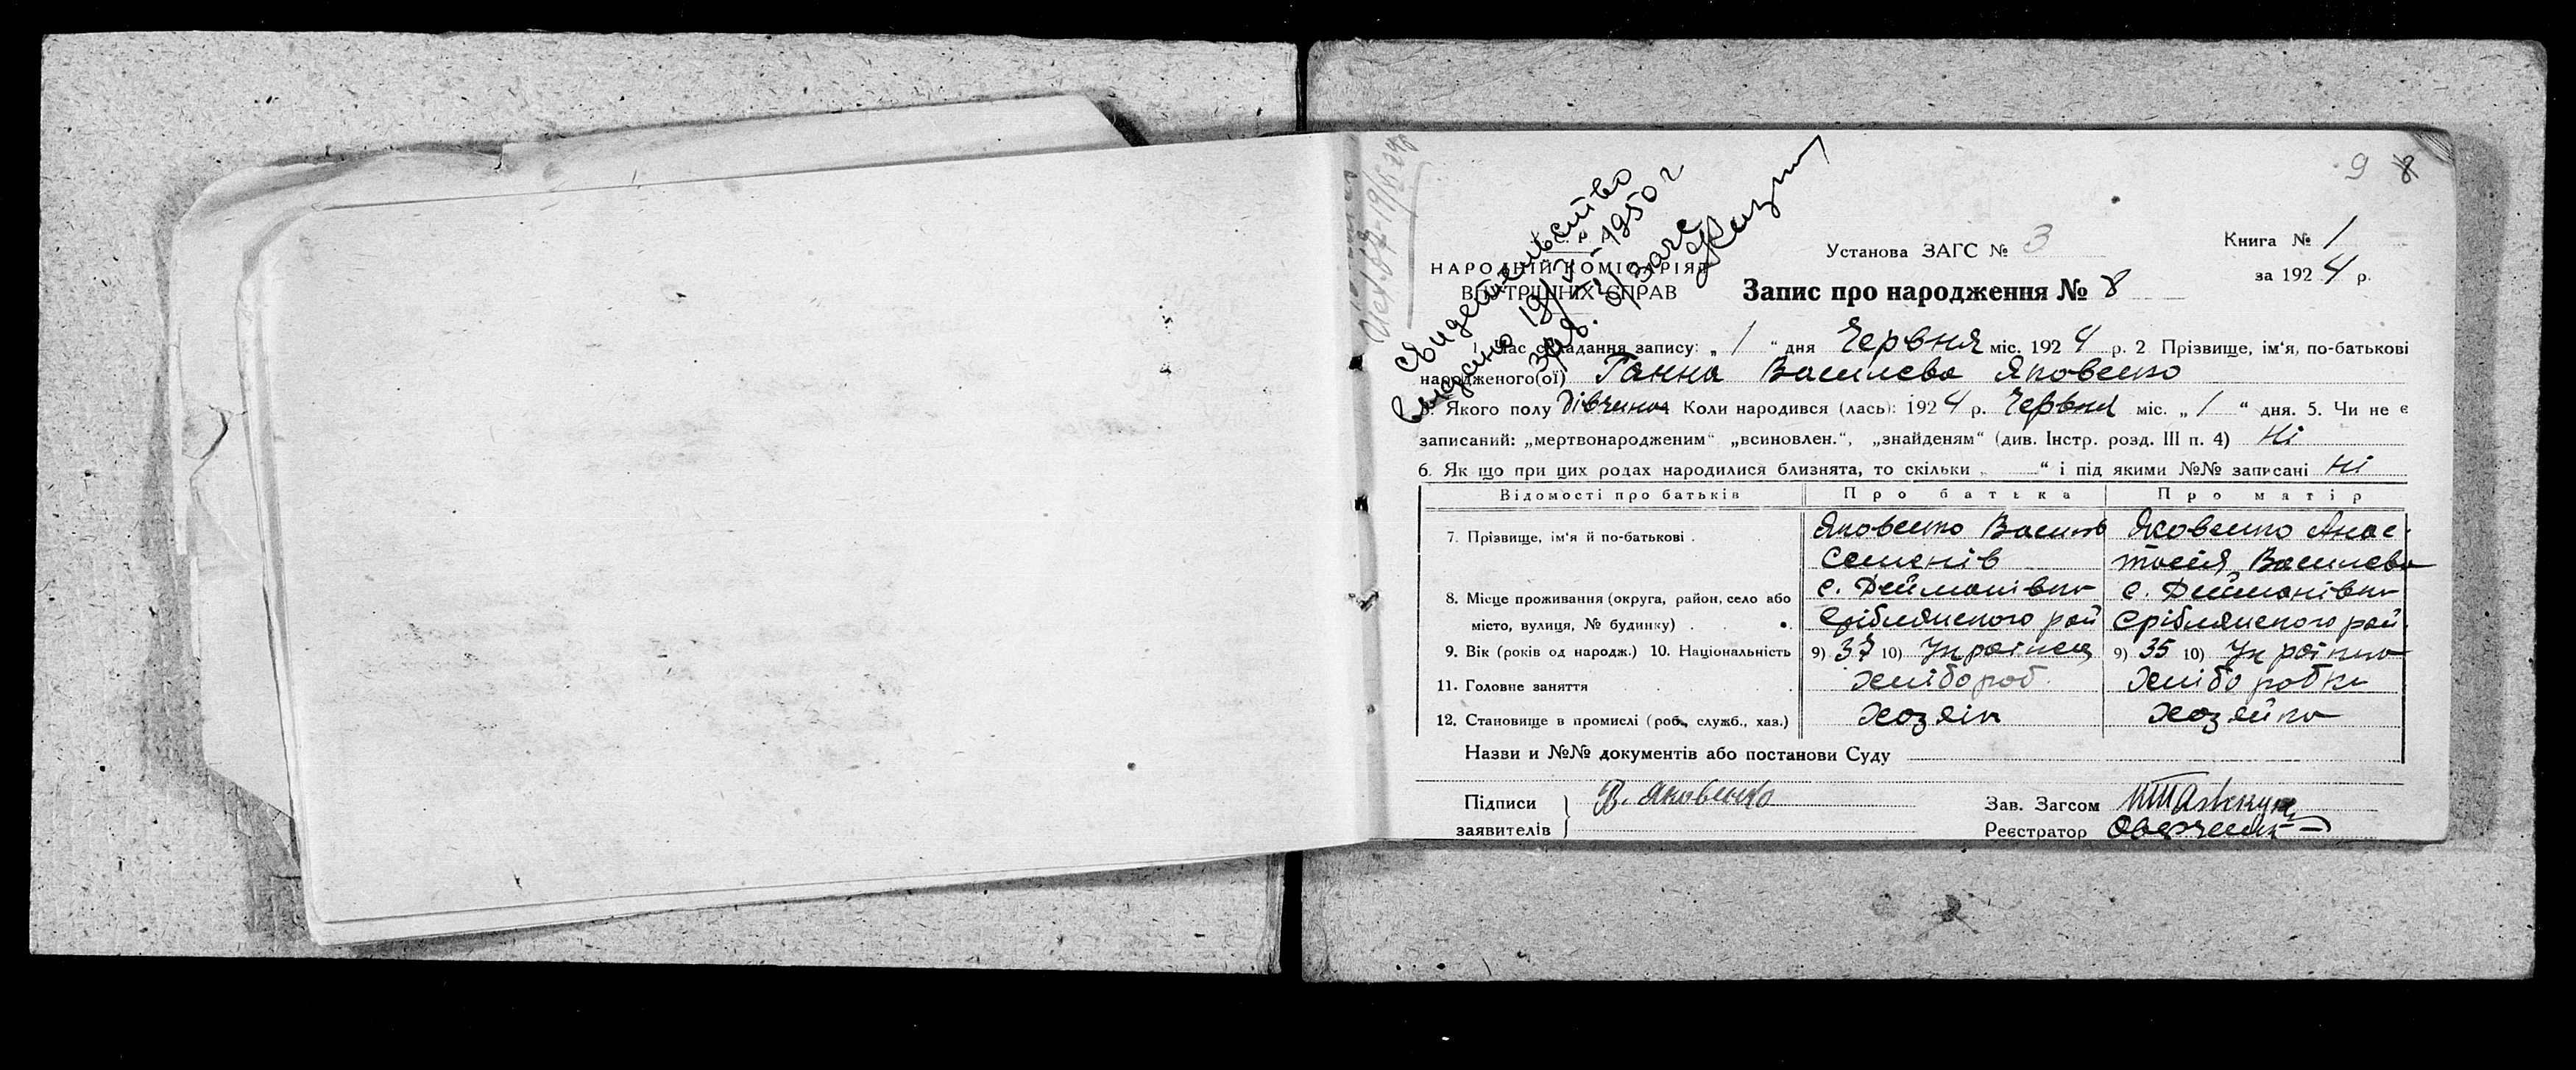 9 8
Свидетельство
выдано 19/V-1950 г
Зав. р/загс
У.С.Р.Р.
НАРОДНІЙ КОМІСАРІЯТ
ВНУТРІШНІХ СПРАВ
Установа ЗАГС № 3
Книга № 1
за 1924 р.
Запис про народження № 8
1. Час складання запису: „1“ дня Червня міс. 1924 р. 2 Прізвище, ім‘я, по-батькові
народженого(ої) Ганна Василева Яковенко
3. Якого полу Дівчина 4 Коли народився (лась): 1924 р. Червня міс. „1“ дня. 5. Чи не є
записаний: „мертвонародженим“ „всиновлен.“, „знайденям“ (див. Інстр. розд. III п. 4) Ні
6. Як що при цих родах народилися близнята, то скільки „ “ і під якими №№ записані Ні
Відомості про батьків Про батька Про матір
7. Прізвище, ім‘я й по-батькові . Яковенко Василь Яковенко Анас-
Семенів тасія Василева
8. Місце проживання (округа, район, село або с. Дейманівка с. Дейманівка
місто, вулиця, № будинку) . . Сріблянського рай Сріблянського рай.
9. Вік (років од народж.) 10. Національність 9) 37 10) Українец 9) 35 10) Українка
11. Головне заняття Хлібороб. Хліборобка
12. Становище в промислі (роб., служб., хаз.) Хозяїн Хозяйка
Назви и №№ документів або постанови Суду
Підписи заявителів В. Яковенко
Зав. Загсом
Реєстратор